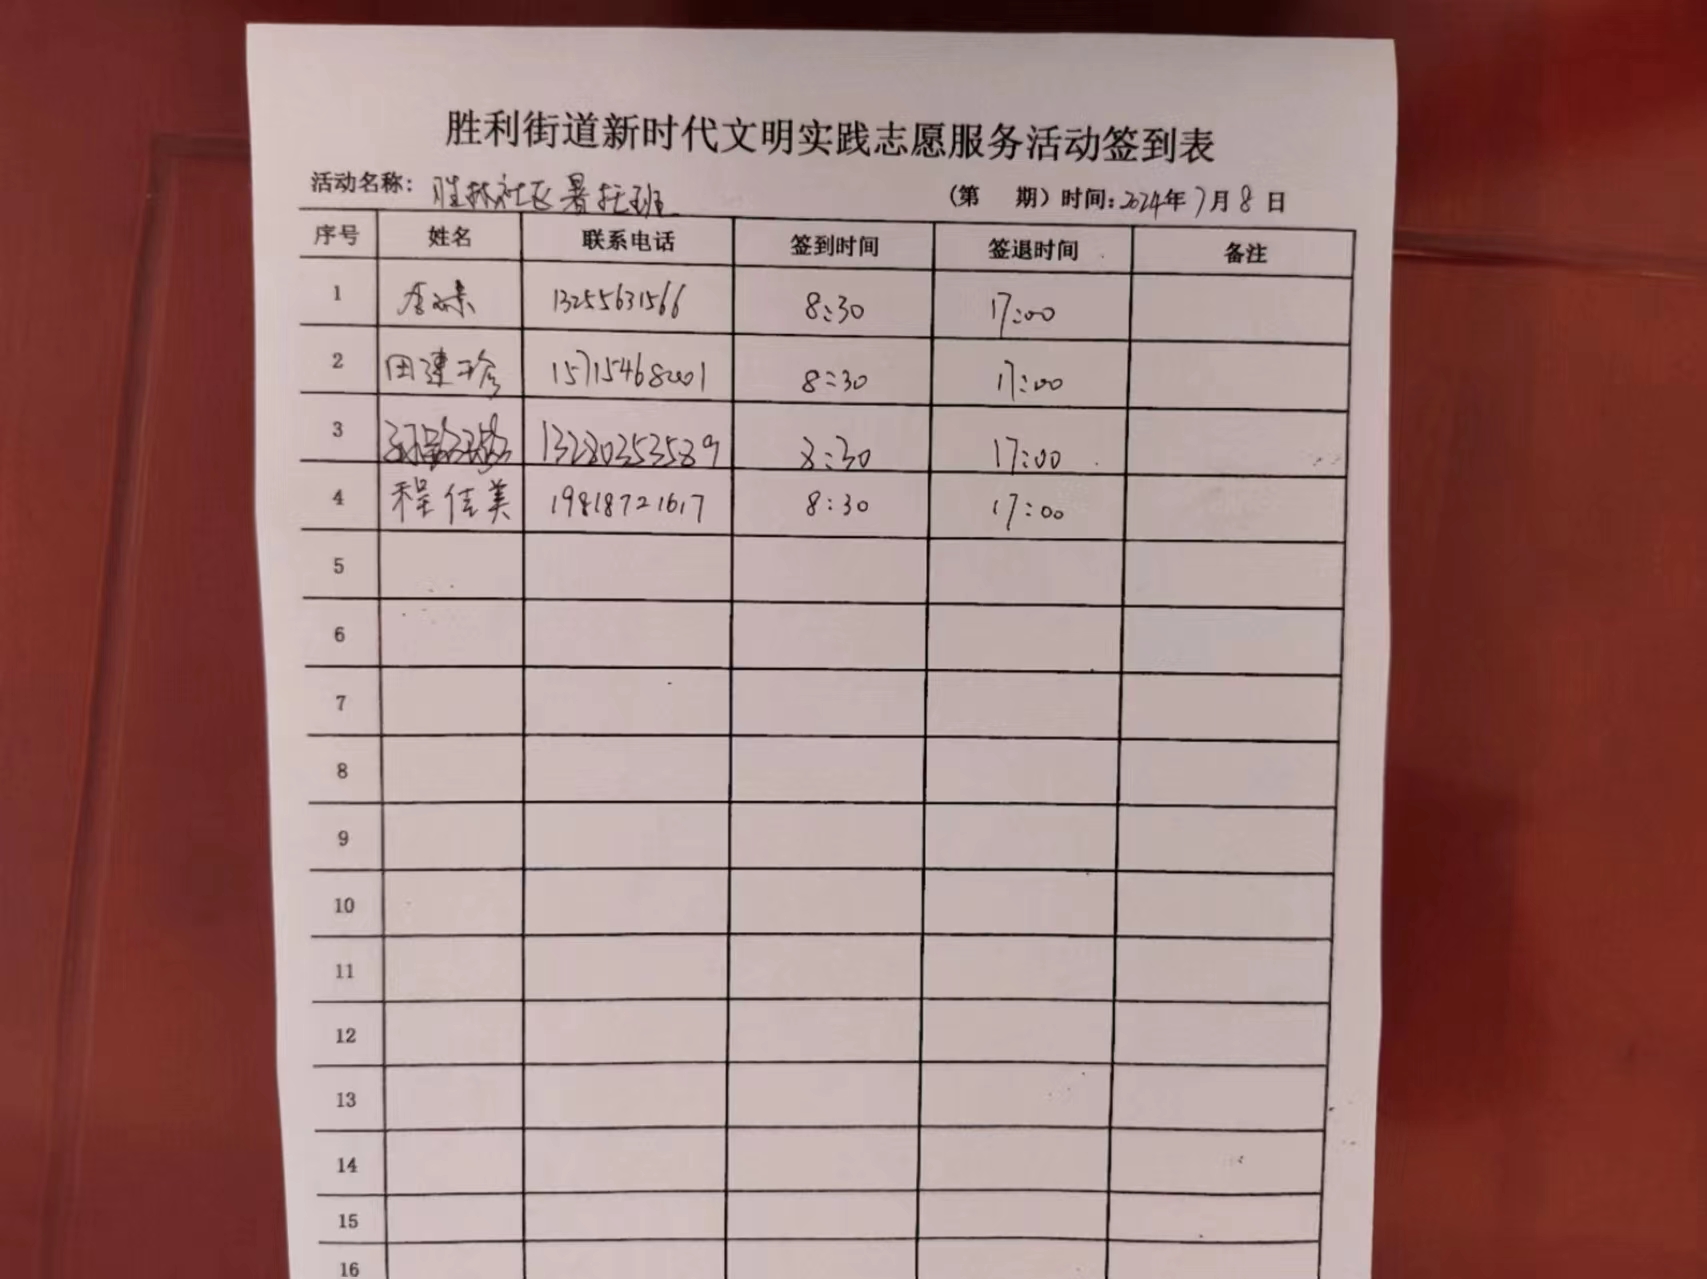 胜利街道新时代文明实践志愿服务活动签到表
活动名称: 胜林社区暑托班 (第 期) 时间: 2024年7月8日
序号 姓名 联系电话 签到时间 签退时间 备注
1 13255631566 8:30 17:00
2 田建珍 15715468001 8:30 17:00
3 13280353589 8:30 17:00
4 程佳美 19818721617 8:30 17:00
5
6
7
8
9
10
11
12
13
14
15
16